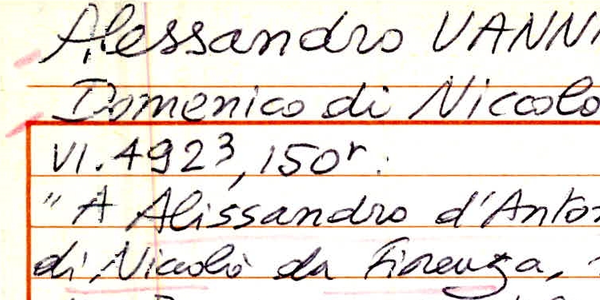 Alessandro VANNI
Domenico di Niccolo
VI.4923, 150r.
"A Alissandro d'Anton
di Nicolò da Firenza,